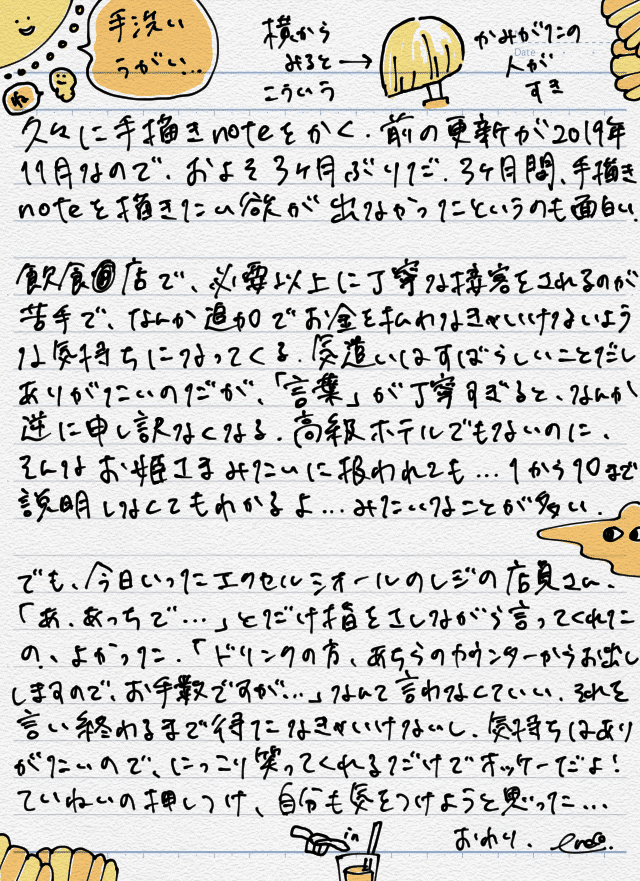 手洗い
うがい…
ね
横から
みると→
こういう
かみがたの
Date
人が
すき
久々に手描きnoteをかく.前の更新が2019年
11月なので、およそ3ヶ月ぶりだ.3ヶ月間、手描き
noteを描きたい欲が出なかったというのも面白い.
飲食店で、必要以上に丁寧な接客をされるのが
苦手で、なんか追加でお金を払わなきゃいけないよう
な気持ちになってくる.気遣いはすばらしいことだし
ありがたいのだが、「言葉」が丁寧すぎると、なんか
逆に申し訳なくなる.高級ホテルでもないのに、
そんなお姫さまみたいに扱われても…1から10まで
説明しなくてもわかるよ…みたいなことが多い.
でも、今日いったエクセルシオールのレジの店員さん、
「あ、あっちで…」とだけ指をさしながら言ってくれた
の、よかった.「ドリンクの方、あちらのカウンターからお出し
しますので、お手数ですが…」なんて言わなくていい.それを
言い終わるまで待たなきゃいけないし、気持ちはあり
がたいので、にっこり笑ってくれるだけでオッケーだよ!
ていねいの押しつけ、自分も気をつけようと思った…
in
おわり.